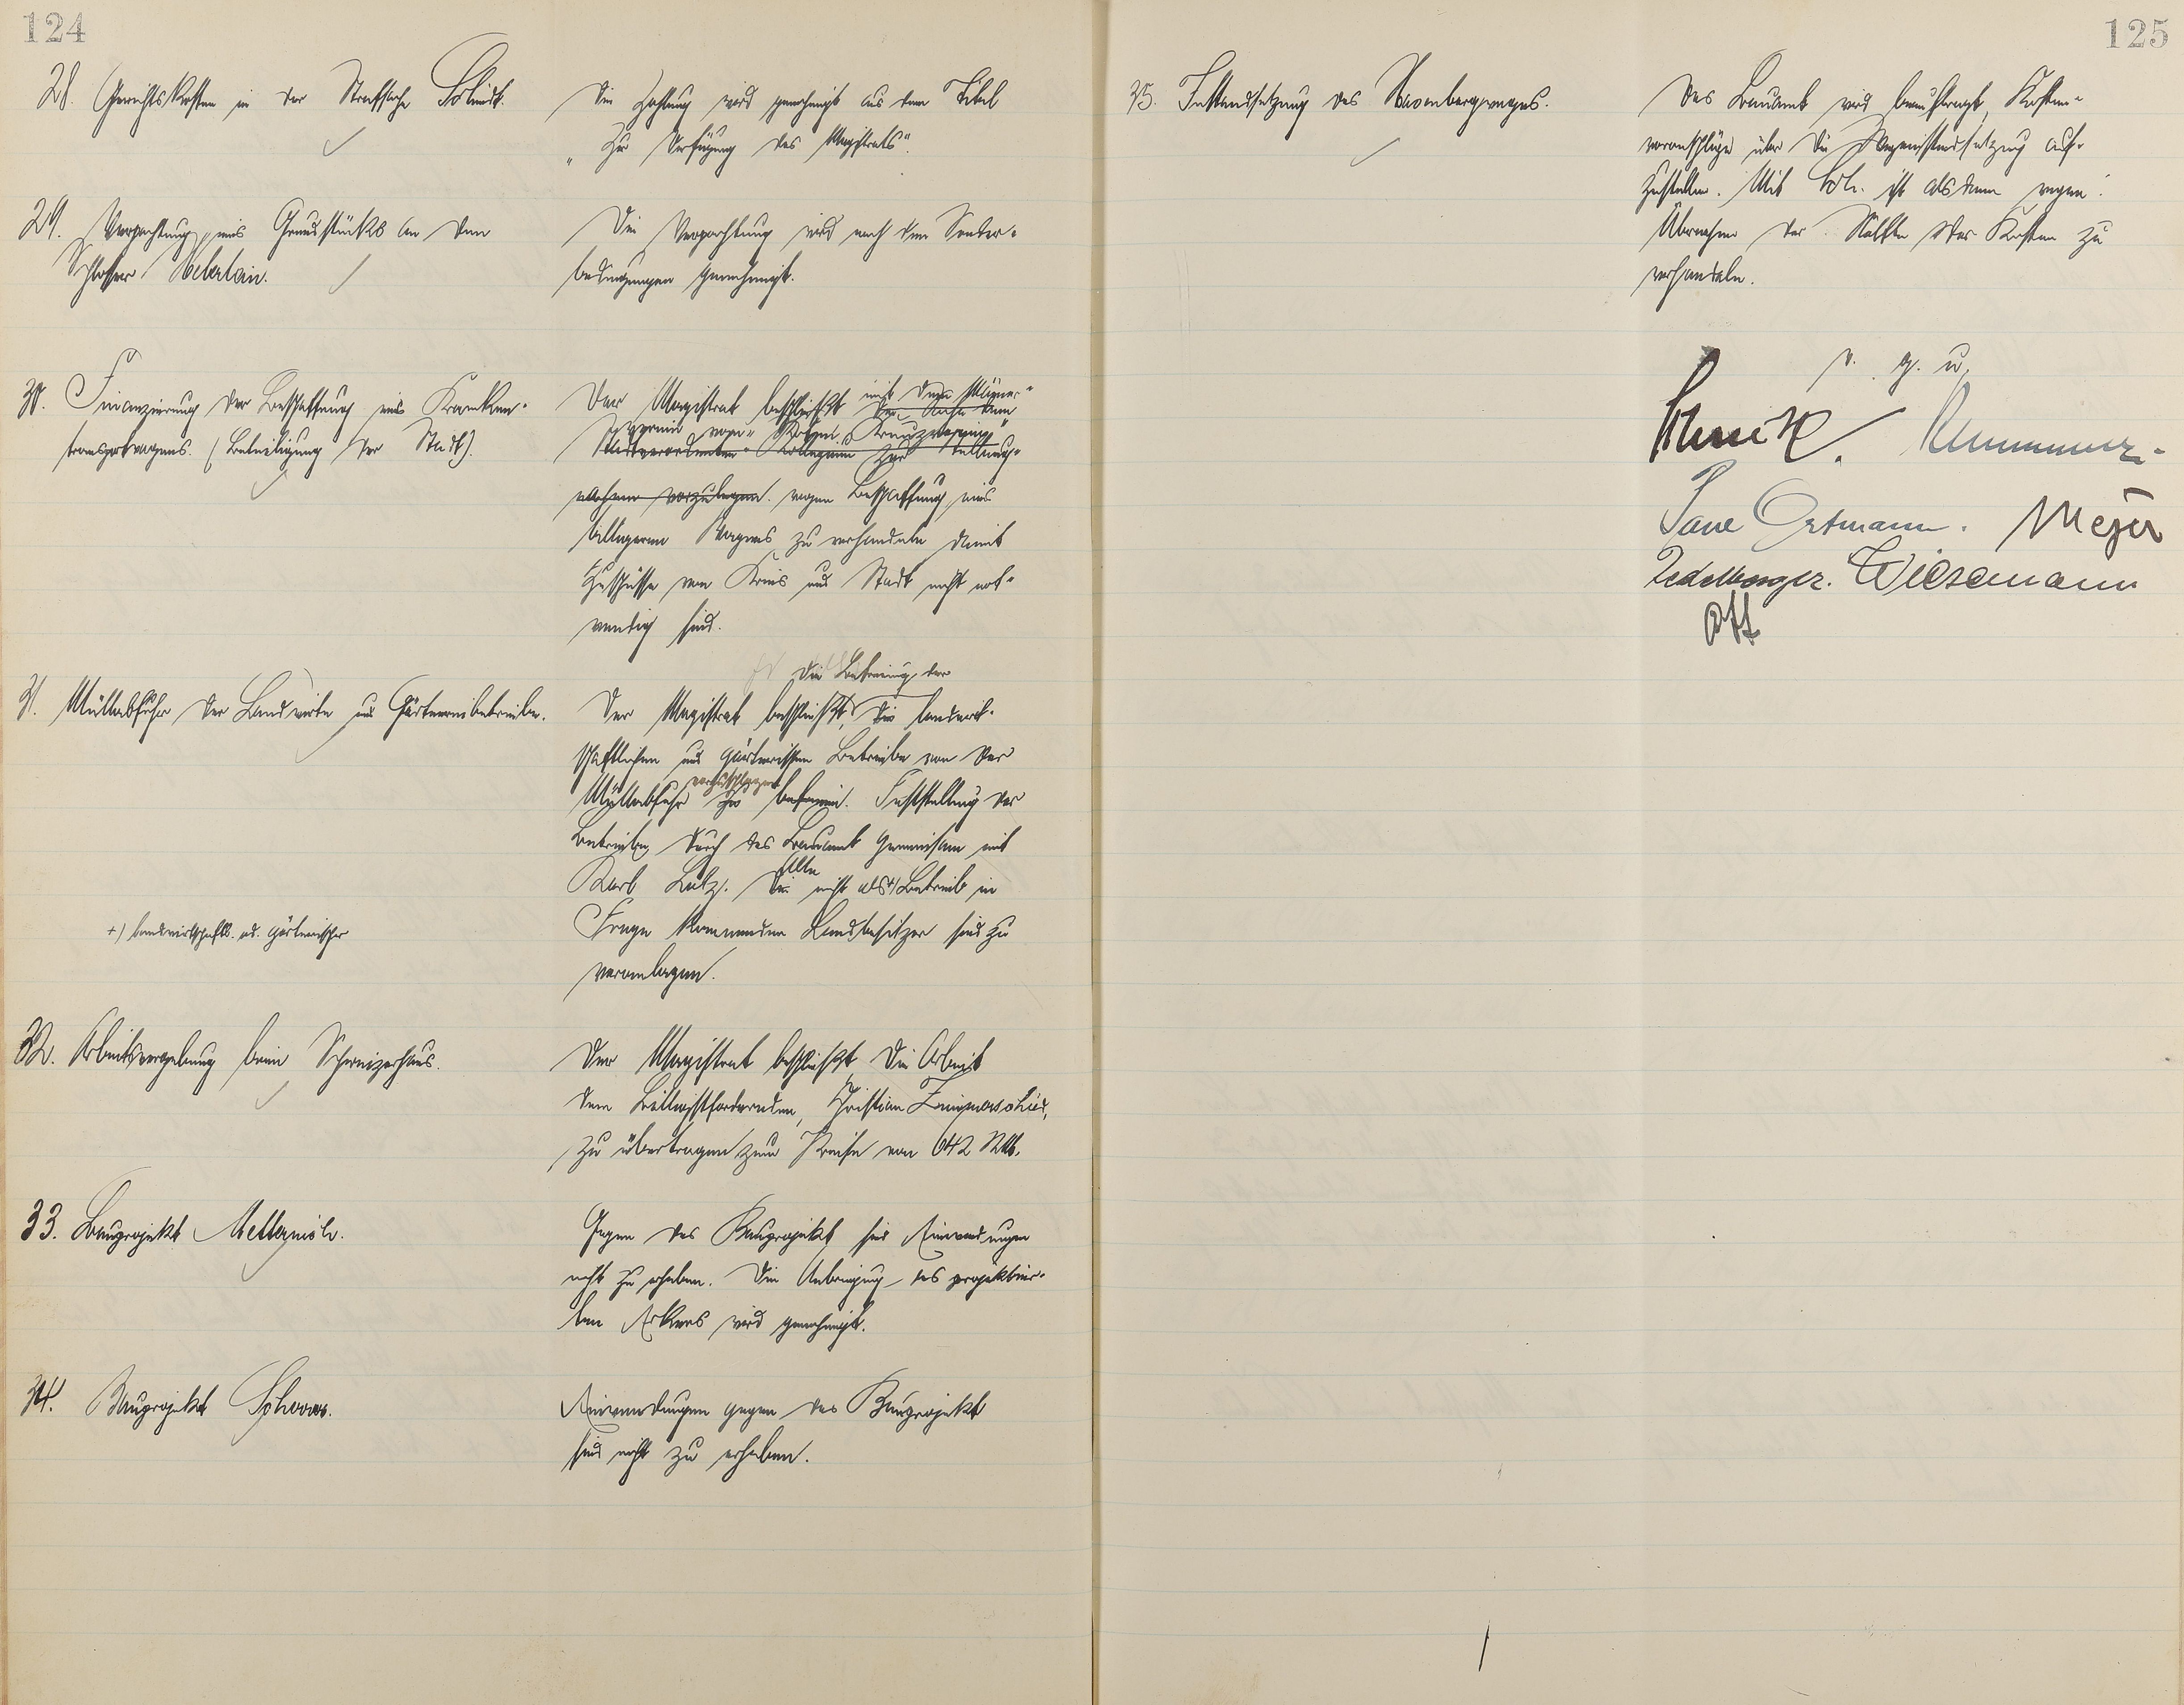 124
28. Gerichtskosten in der Strafsache Schmidt.
Die Zahlung wird genehmigt aus dem Titel
"Zur Verfügung des Magistrats".
29. Verpachtung eines Grundstücks an den
Schlosser Heberlein.
Die Verpachtung wird nach den Sonder-
bedingungen genehmigt.
30. Finanzierung der Beschaffung eines Kranken-
transportwagens. (Beteiligung der Stadt).
Der Magistrat beschließt mit dem Männer-
verein vom "Roten Kreuz"
Stadtverordneten-Kollegium zur
nahme vorzulegen. wegen Beschaffung eines
billigeren Wagens zu verhandeln damit
Zuschüsse von Kreis und Stadt nicht not-
wendig sind.
31. Müllabfuhr der Landwirte und Gärtnereibetriebe.
die Befreiung der
Der Magistrat beschließt, die landwirt-
schaftlichen und gärtnerischen Betriebe von der
vorzuschlagen
Müllabfuhr zu befreien. Feststellung der
Betriebe durch das Bauamt gemeinsam mit
Karl Lutz. Die nicht als +) Betrieb in
Alle
Frage kommenden Landbesitzer sind zu
veranlagen.
+) landwirtschaftl. od. gärtnerischer
32. Arbeitsvergebung beim Schweizerhaus.
Der Magistrat beschließt die Arbeit
dem Billigstfordernden, Christian
zu übertragen zum Preise von 642 Mk.
33. Bauprojekt Metternich.
Gegen das Bauprojekt sind Einwendungen
nicht zu erheben. Die Anbringung des projektier-
ten Erkers wird genehmigt.
34. Bauprojekt Schwarz.
Einwendungen gegen das Bauprojekt
sind nicht zu erheben.
125
35. Instandsetzung des
Das Bauamt wird beauftragt, Kosten-
voranschläge über die Wegeinstandsetzung auf-
zustellen. Mit ist alsdann wegen
Übernahme der Hälfte der Kosten zu
verhandeln.
v. g. u.
Ortmann. Meyer
Wiesemann